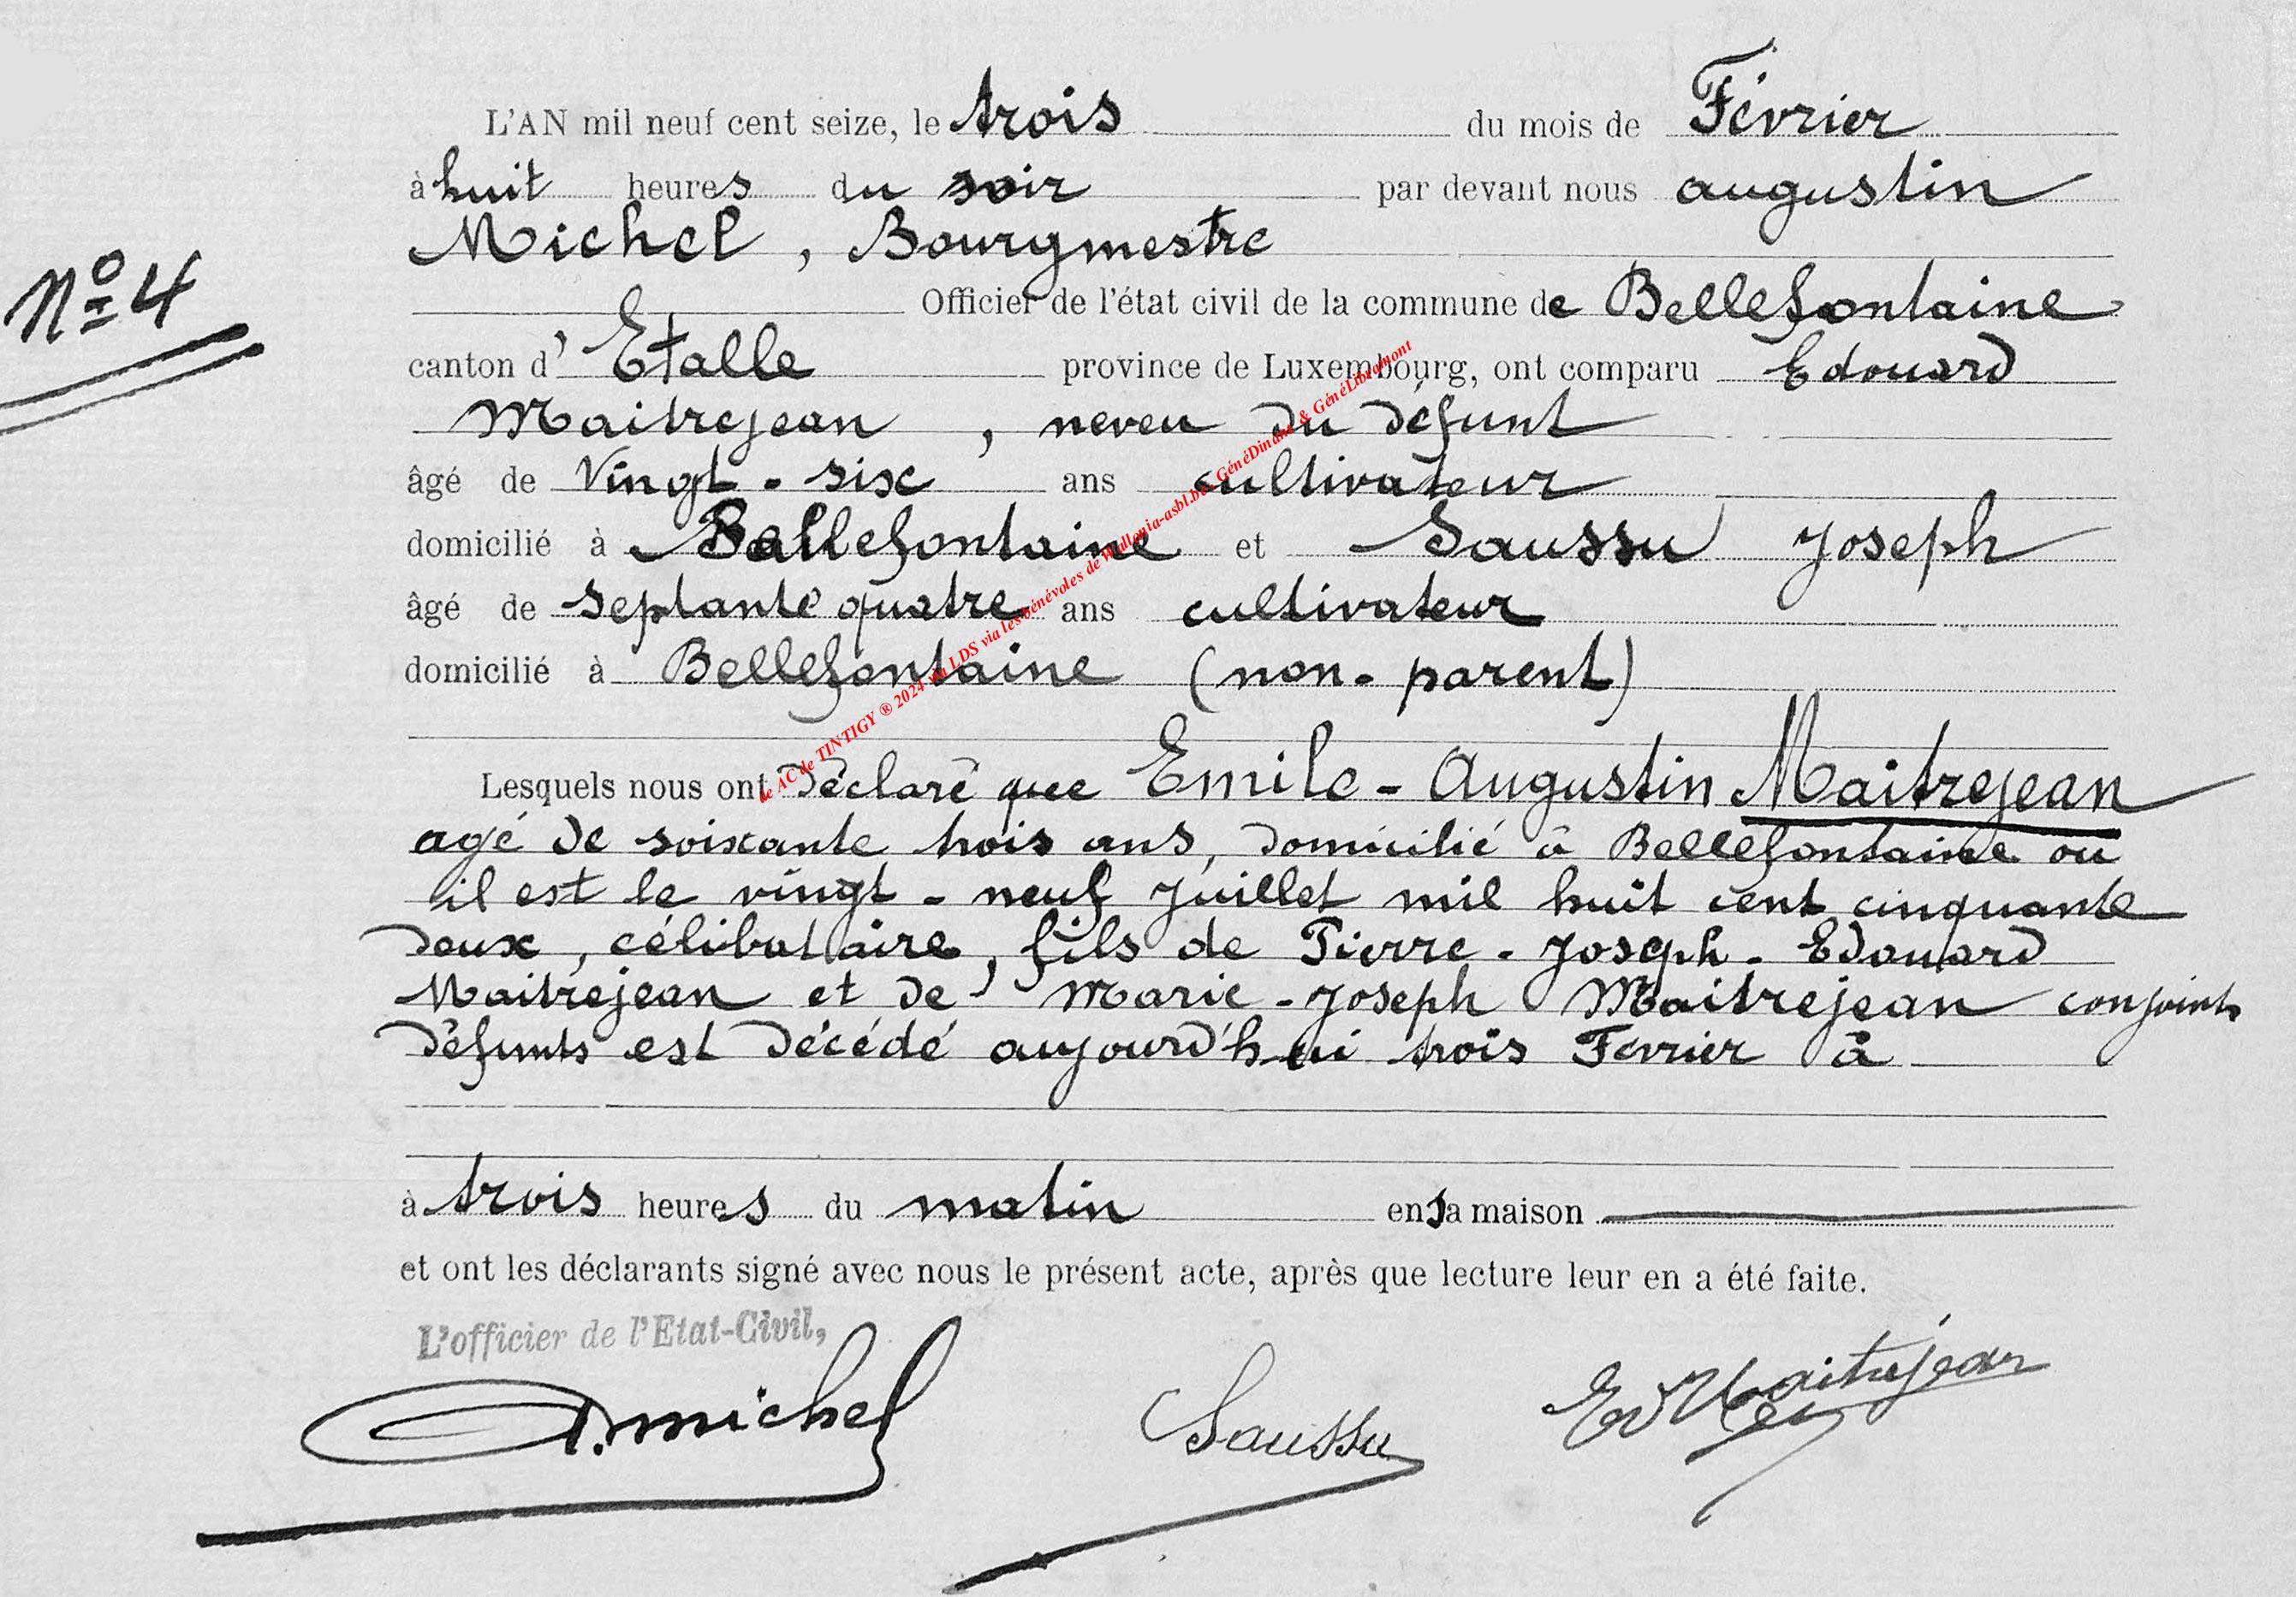 L'AN mil neuf cent seize, le trois du mois de Février
à huit heures du soir par devant nous augustin
Michel, Bourgmestre
N° 4
Officier de l'état civil de la commune de Bellefontaine
canton d' Etalle province de Luxembourg, ont comparu Edouard
Maitrejean, neveu du défunt
âgé de Vingt-six ans cultivateur
domicilié à Bellefontaine et Saussu Joseph
âgé de septante quatre ans cultivateur
domicilié à Bellefontaine (non-parent)
Lesquels nous ont déclaré que Emile-Augustin Maitrejean
agé de soixante trois ans, domicilié à Bellefontaine où
il est le vingt-neuf Juillet mil huit cent cinquante
deux, célibataire, fils de Pierre-Joseph-Edouard
Maitrejean et de Marie-Joseph Maitrejean conjoints
défunts est décédé aujourd'hui trois Février à
à trois heures du matin en sa maison
et ont les déclarants signé avec nous le présent acte, après que lecture leur en a été faite.
L'officier de l'Etat-Civil,
A. michel Saussu Ed Maitrejean
de AC de TINTIGY ® 2024 via LDS via les bénévoles de Wallonia-asbl.be, GénéDinant & GénéLibramont